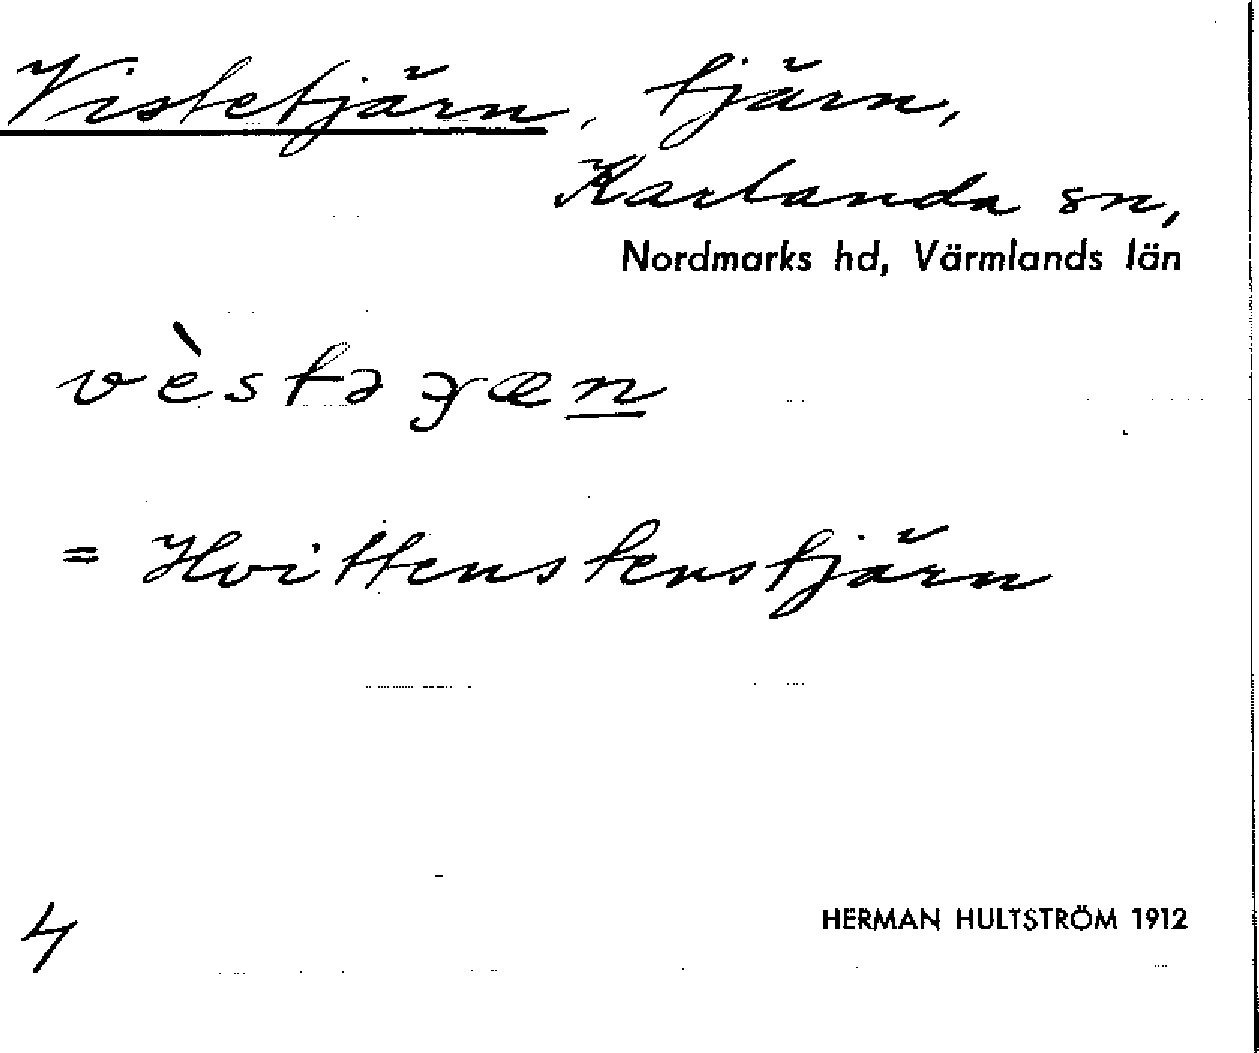 Vistetjärn, tjärn,
Karlanda sn,
Nordmarks hd, Värmlands län
vèstə ȝæn
= Hvittenstenstjärn
4
HERMAN HULTSTRÖM 1912